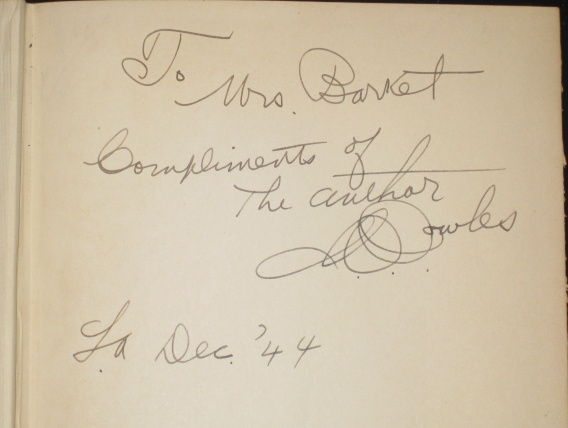 To Mrs. Barket
Compliments of
The author
L.a Dec. '44